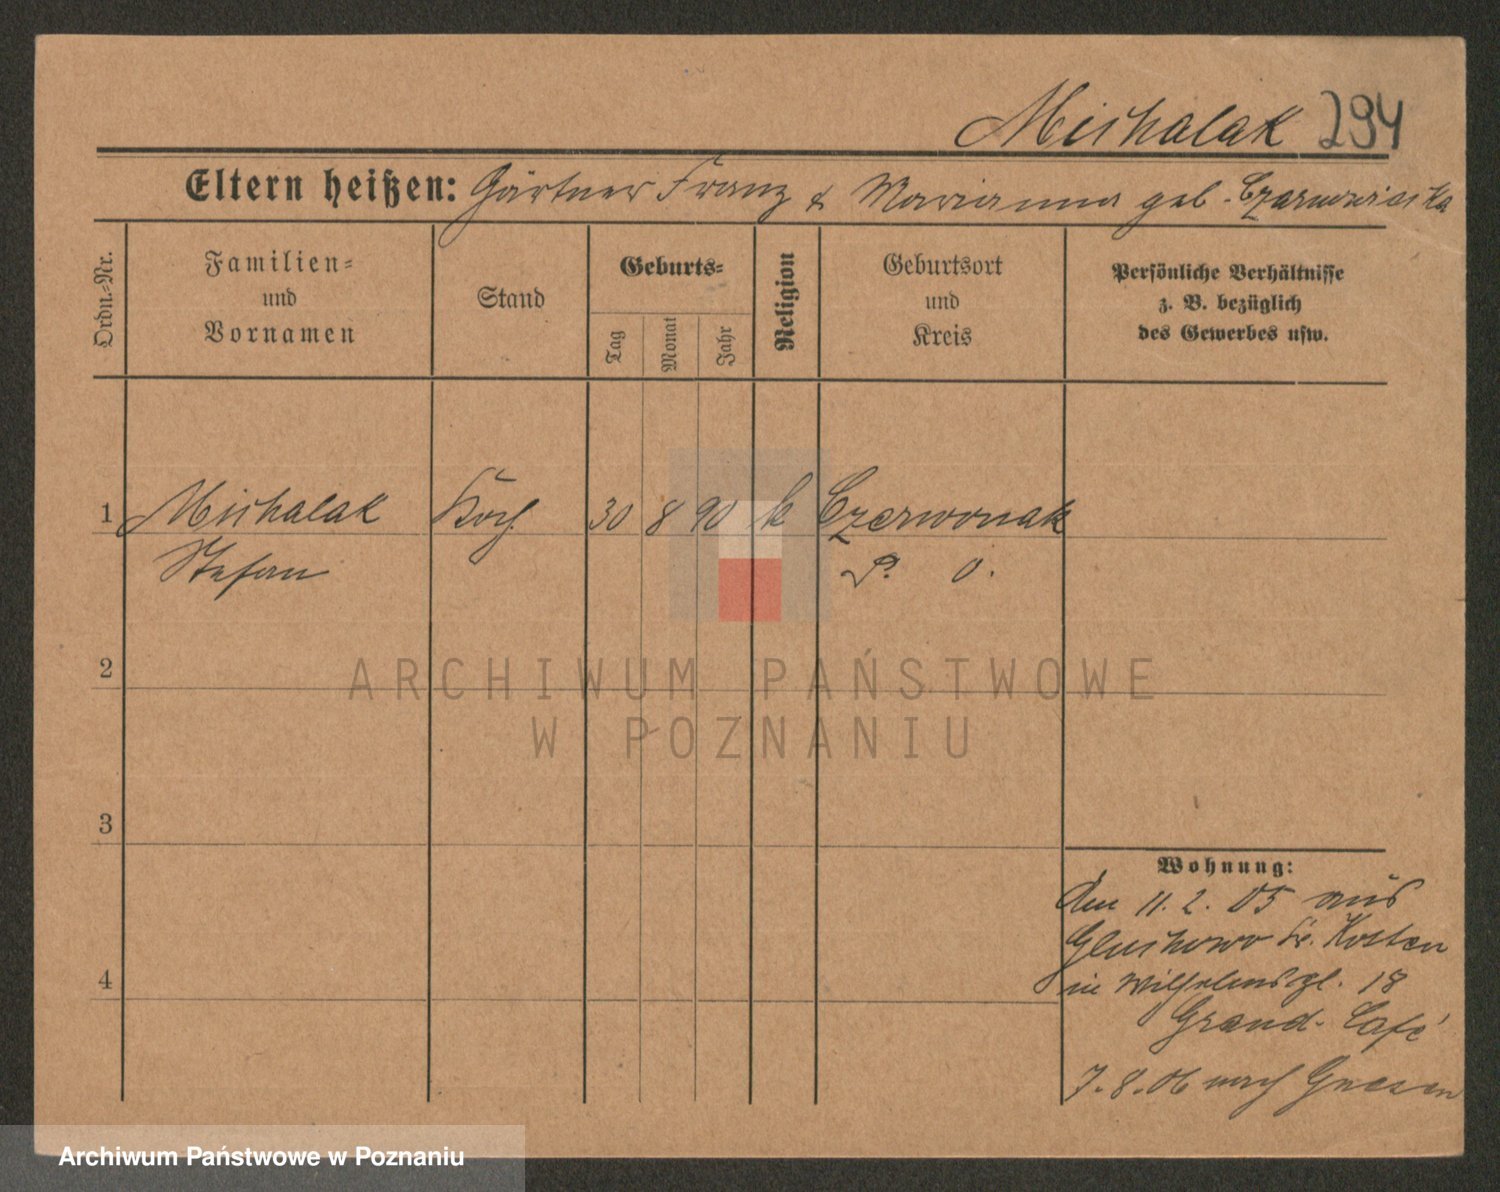 Michalak 294
Eltern heißen: Gärtner Franz & Marianna geb. Czarnowinska
Ordn.-Nr.
Familien-
und
Vornamen
Stand
Geburts-
Tag
Monat
Jahr
Religion
Geburtsort
und
Kreis
Persönliche Verhältnisse
z. B. bezüglich
des Gewerbes usw.
1 Michalak Koch 30 8 90 k Czerwonak
Stefan P. O.
2
3
4
Wohnung:
den 11. 2. 05 aus
Gluchowo Kr. Kosten
in Wilhelmspl. 18
Grand-Café
7. 8. 06 nach Gnesen
ARCHIWUM PAŃSTWOWE
W POZNANIU
Archiwum Państwowe w Poznaniu